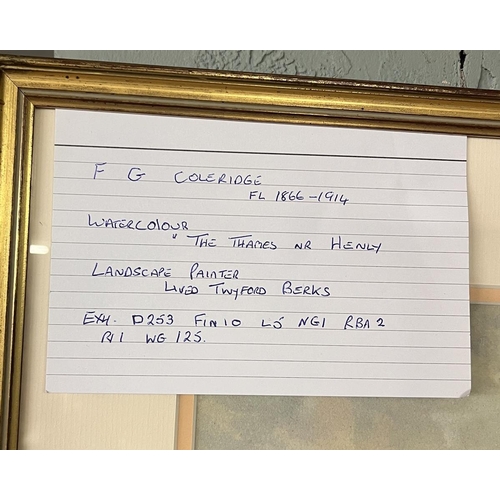 F G COLERIDGE
FL 1866-1914
WATERCOLOUR
" THE THAMES NR HENLY
LANDSCAPE PAINTER
LIVED TWYFORD BERKS
EXH. D253 FIN10 L5 NG1 RBA2
RI1 WG 125.